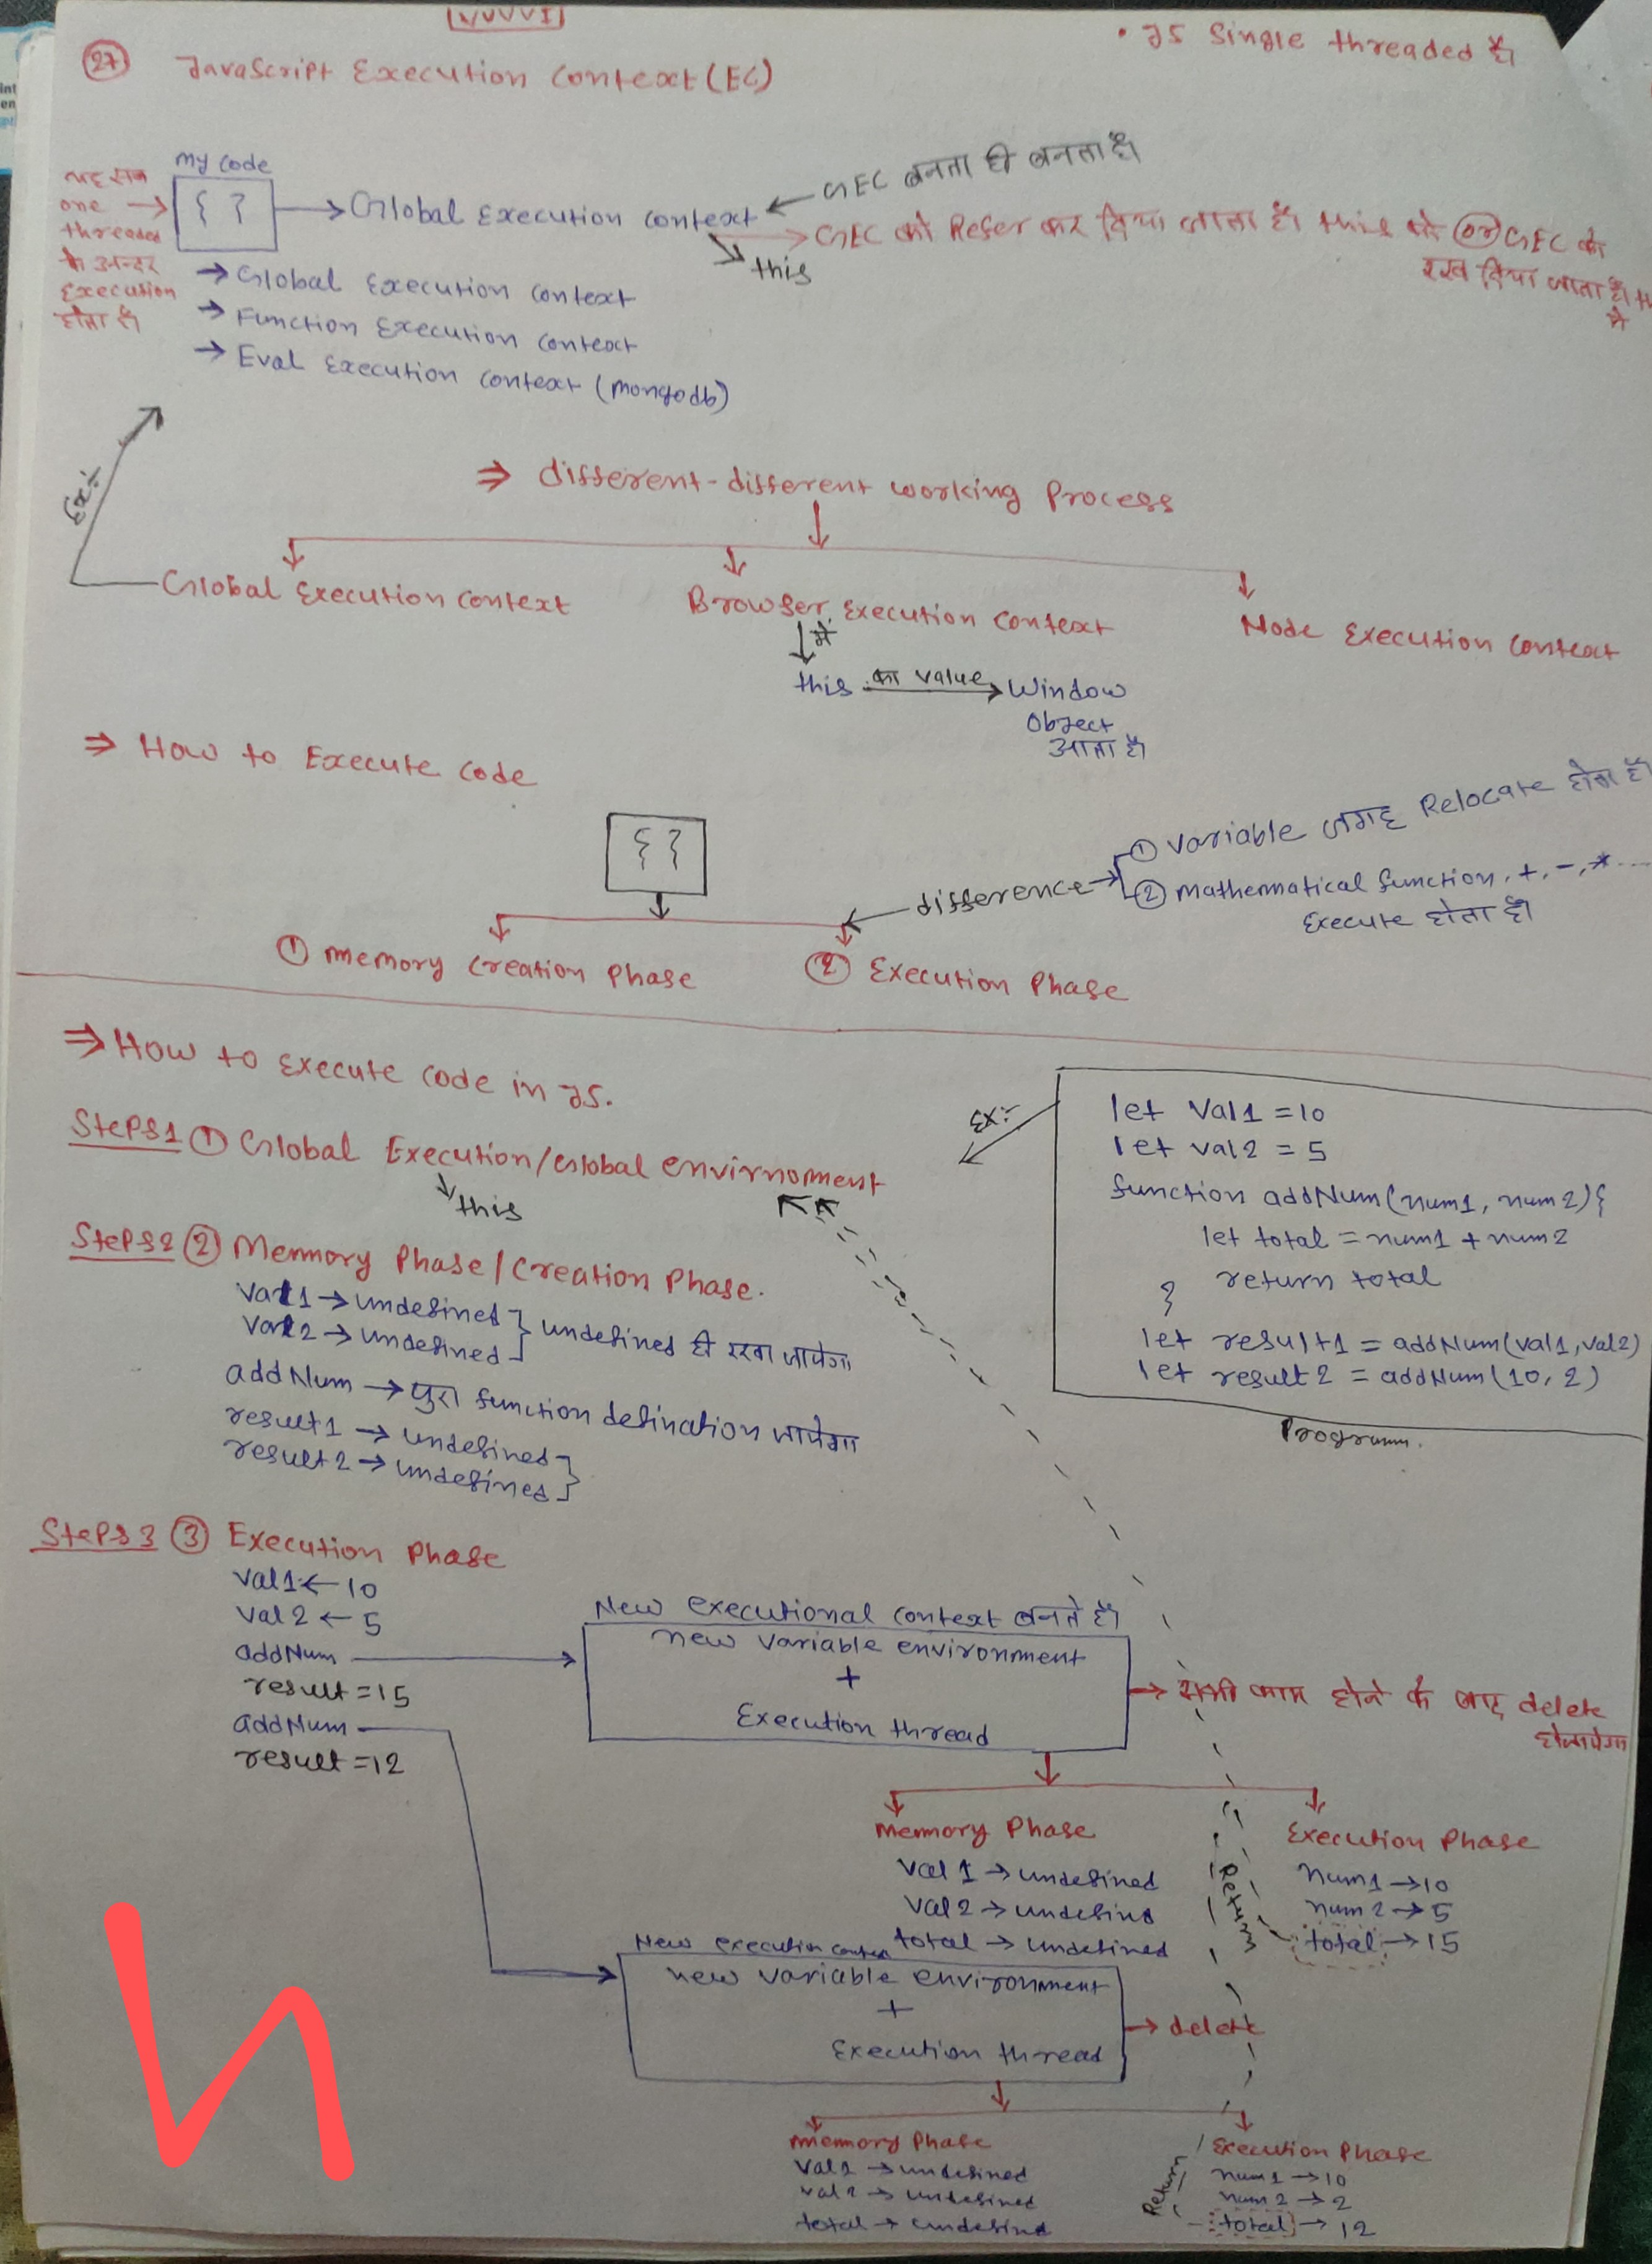 • JS Single threaded है
27 JavaScript Execution Context (EC)
my code
{ }
यह सब
one
threaded
के अन्दर
Execution
होता है
Global Execution Context
GEC बनता ही बनता है।
this
GEC को Refer कर दिया जाता है। this को or GEC को
रख दिया जाता है।
मे
→ Global Execution Context
→ Function Execution Context
→ Eval Execution Context (mongodb)
Ex:-
⇒ different-different working Process
Global Execution Context
Browser Execution Context
Node Execution Context
मे
this का value → Window
Object
आता है।
⇒ How to Execute Code
{ }
difference
① Variable जगह Relocate होता है।
② mathematical function, +, -, * ....
Execute होता है।
① memory Creation Phase
② Execution Phase
⇒ How to Execute Code in JS.
Steps1 ① Global Execution/Global envirnoment
this
Ex:-
let Val1 = 10
let val2 = 5
function addNum(num1, num2){
let total = num1 + num2
return total
}
let result1 = addNum(val1, val2)
let result2 = addNum(10, 2)
Programm.
Steps2 ② Memmory Phase/Creation Phase.
Val1 → undefined
Val2 → undefined
undefined ही रखा जायेगा
addNum → पुरा function defination जायेगा
result1 → undefined
result2 → undefined
Steps3 ③ Execution Phase
Val1 ← 10
Val2 ← 5
addNum
result = 15
addNum
result = 12
New executional context बनते है।
new variable environment
+
Execution thread
→ सभी काम होने के बाद delete
होजायेगा
memory Phase
Val1 → undefined
Val2 → undefind
total → undefined
Execution Phase
num1 → 10
num2 → 5
total → 15
Return
New execution contex
new variable environment
+
Execution thread
→ delete
memory Phase
Val1 → undefined
val2 → undefined
total → undefind
Execution Phase
num1 → 10
num2 → 2
total → 12
Return